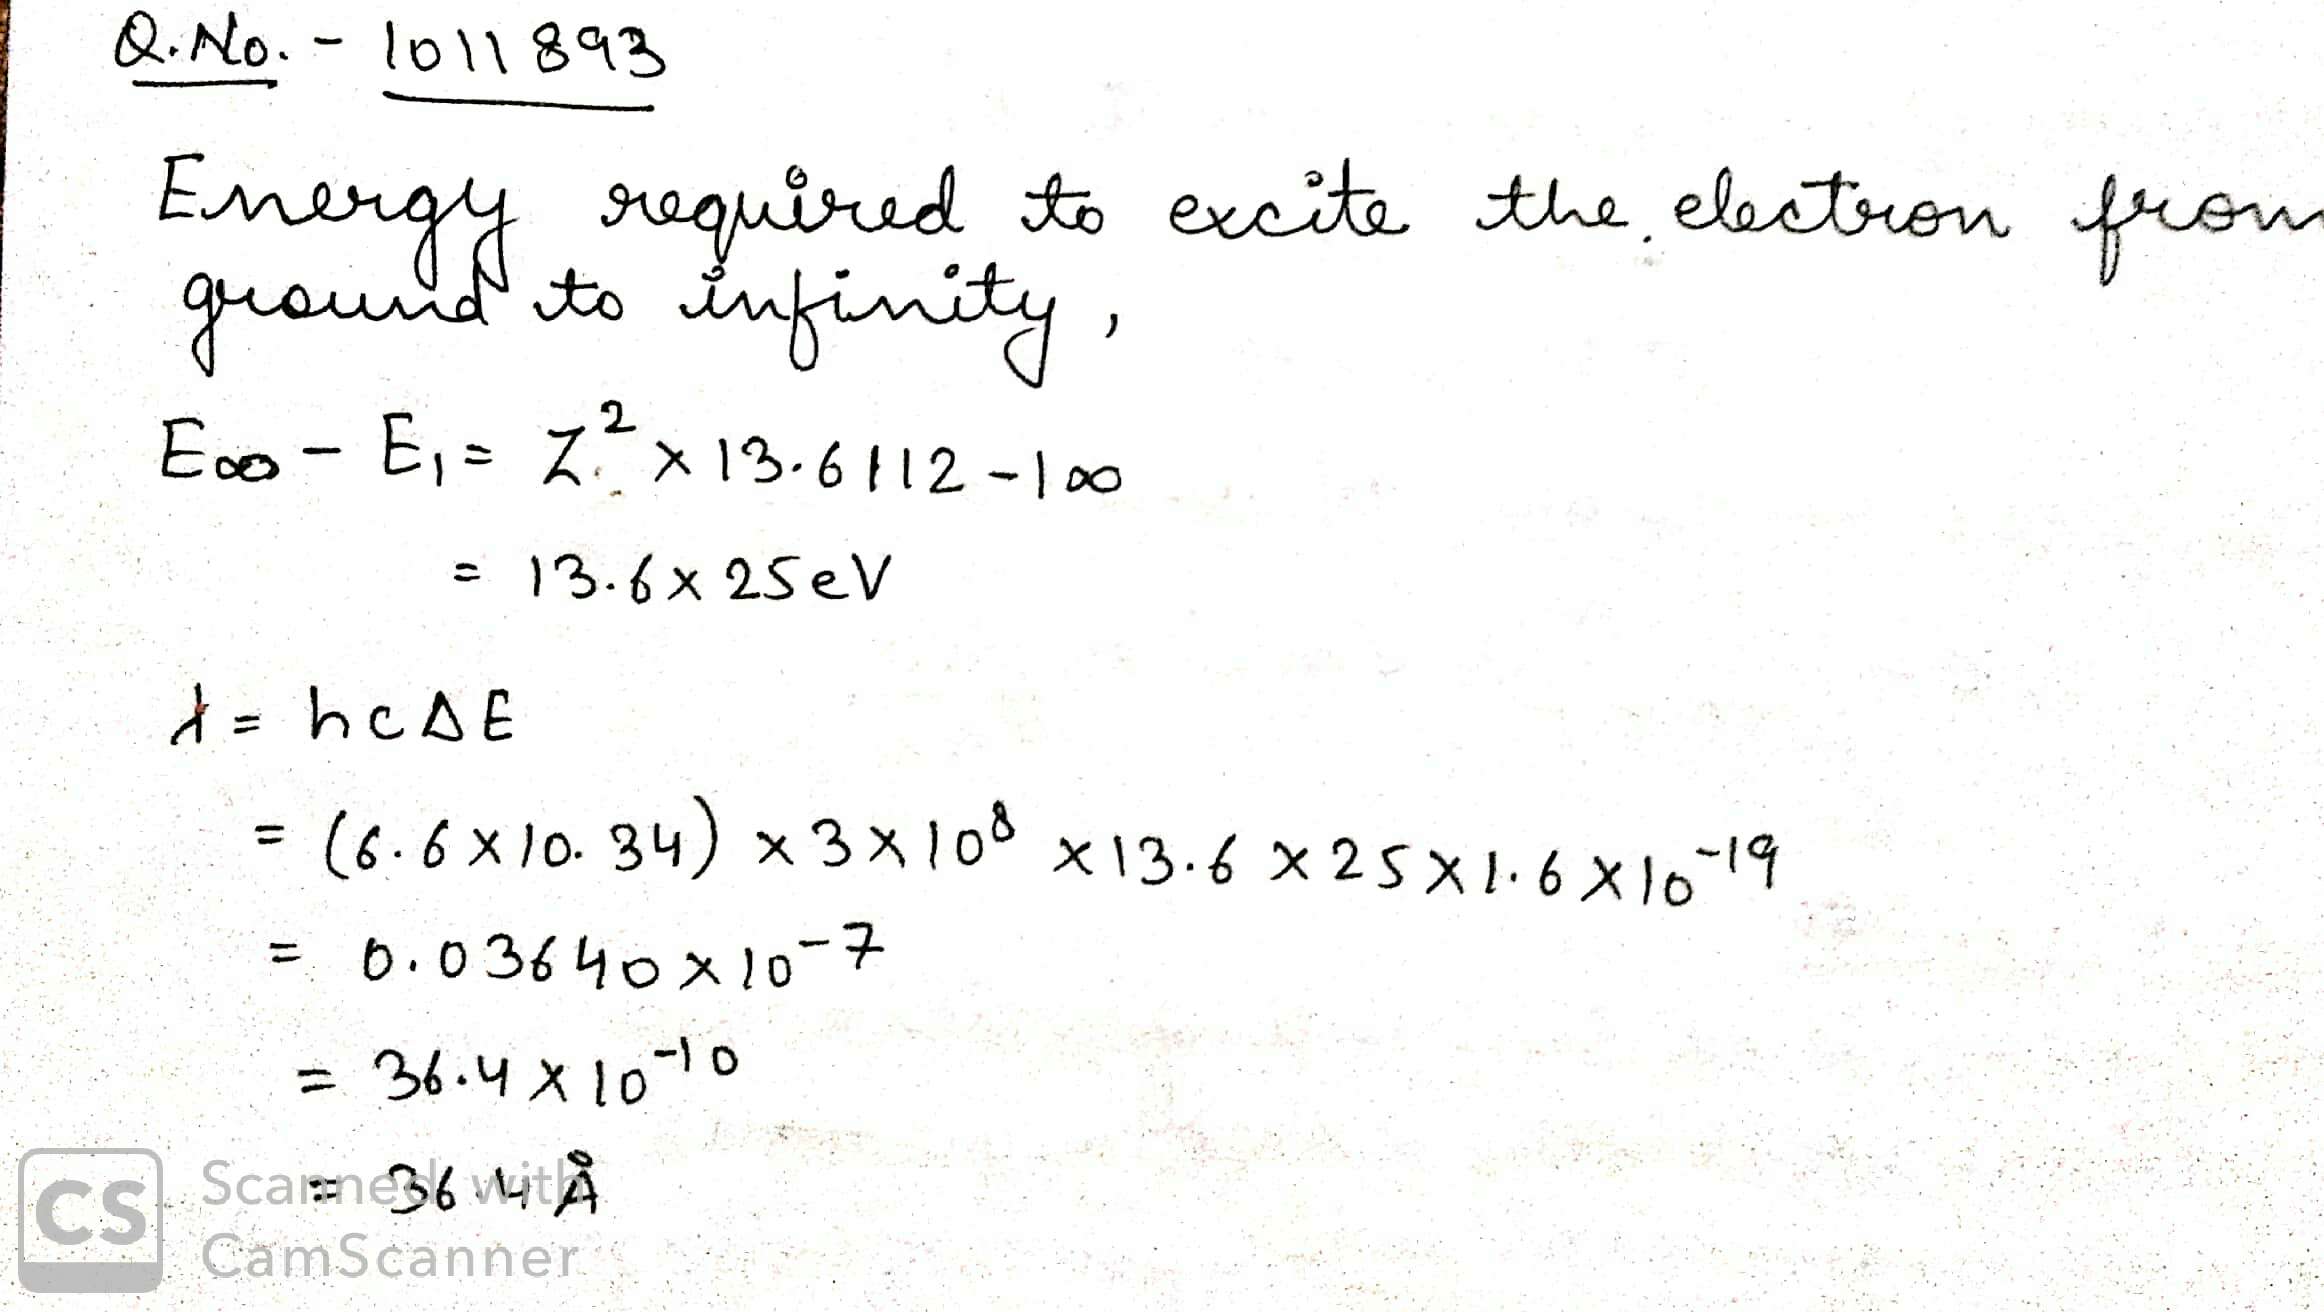 Q.No. - 1011893
Energy required to excite the electron from
ground to infinity,
E∞ - E₁ = Z² × 13.6112 - 1∞
= 13.6 × 25eV
λ = hcΔE
= (6.6 × 10.34) × 3 × 10⁸ × 13.6 × 25 × 1.6 × 10⁻¹⁹
= 0.03640 × 10⁻⁷
= 36.4 × 10⁻¹⁰
= 36.4 Å
CS Scanned with
CamScanner